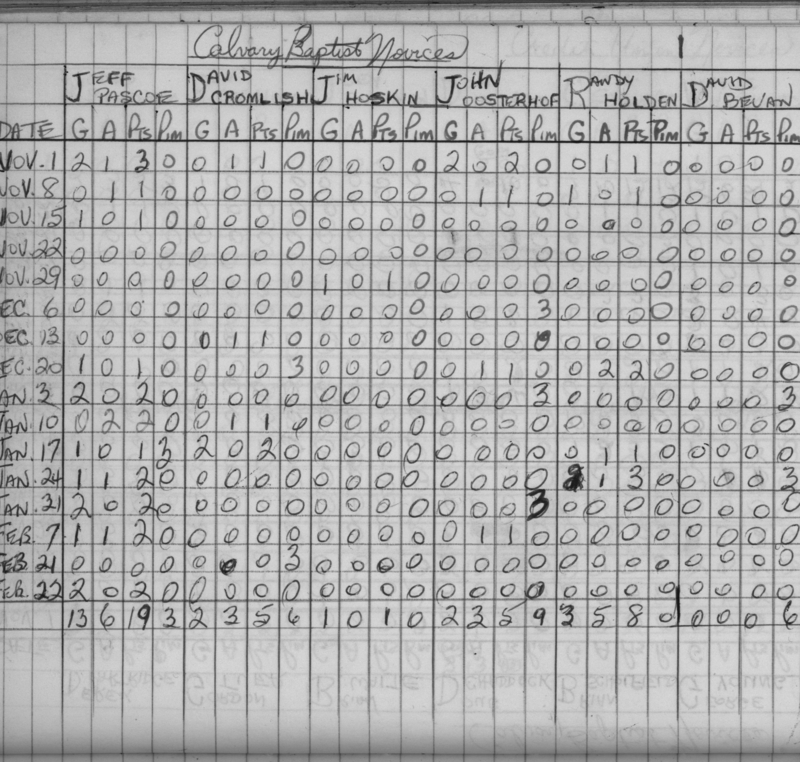 Calvary Baptist Novices
JEFF PASCOE DAVID CROMLISH JIM HOSKIN JOHN OOSTERHOF RANDY HOLDEN DAVID BEVAN
DATE G A Pts Pim G A Pts Pim G A Pts Pim G A Pts Pim G A Pts Pim G A Pts Pim
NOV. 1 2 1 3 0 0 1 1 0 0 0 0 0 2 0 2 0 0 1 1 0 0 0 0 0
NOV. 8 0 1 1 0 0 0 0 0 0 0 0 0 0 1 1 0 1 0 1 0 0 0 0 0
NOV. 15 1 0 1 0 0 0 0 0 0 0 0 0 0 0 0 0 0 0 0 0 0 0 0 0
NOV. 22 0 0 0 0 0 0 0 0 0 0 0 0 0 0 0 0 0 0 0 0 0 0 0 0
NOV. 29 0 0 0 0 0 0 0 0 1 0 1 0 0 0 0 0 0 0 0 0 0 0 0 0
EC. 6 0 0 0 0 0 0 0 0 0 0 0 0 0 0 0 3 0 0 0 0 0 0 0 0
EC. 13 0 0 0 0 0 1 1 0 0 0 0 0 0 0 0 0 0 0 0 0 0 0 0 0
EC. 20 1 0 1 0 0 0 0 3 0 0 0 0 0 1 1 0 0 2 2 0 0 0 0 0
AN. 3 2 0 2 0 0 0 0 0 0 0 0 0 0 0 0 3 0 0 0 0 0 0 0 3
JAN. 10 0 2 2 0 0 1 1 0 0 0 0 0 0 0 0 0 0 0 0 0 0 0 0 0
JAN. 17 1 0 1 3 2 0 2 0 0 0 0 0 0 0 0 0 0 1 1 0 0 0 0 0
JAN. 24 1 1 2 0 0 0 0 0 0 0 0 0 0 0 0 0 2 1 3 0 0 0 0 3
JAN. 31 2 0 2 0 0 0 0 0 0 0 0 0 0 0 0 3 0 0 0 0 0 0 0 0
FEB. 7 1 1 2 0 0 0 0 0 0 0 0 0 0 1 1 0 0 0 0 0 0 0 0 0
FEB. 21 0 0 0 0 0 0 0 3 0 0 0 0 0 0 0 0 0 0 0 0 0 0 0 0
FEB. 22 2 0 2 0 0 0 0 0 0 0 0 0 0 0 0 0 0 0 0 0 0 0 0 0
13 6 19 3 2 3 5 6 1 0 1 0 2 3 5 9 3 5 8 0 0 0 0 6